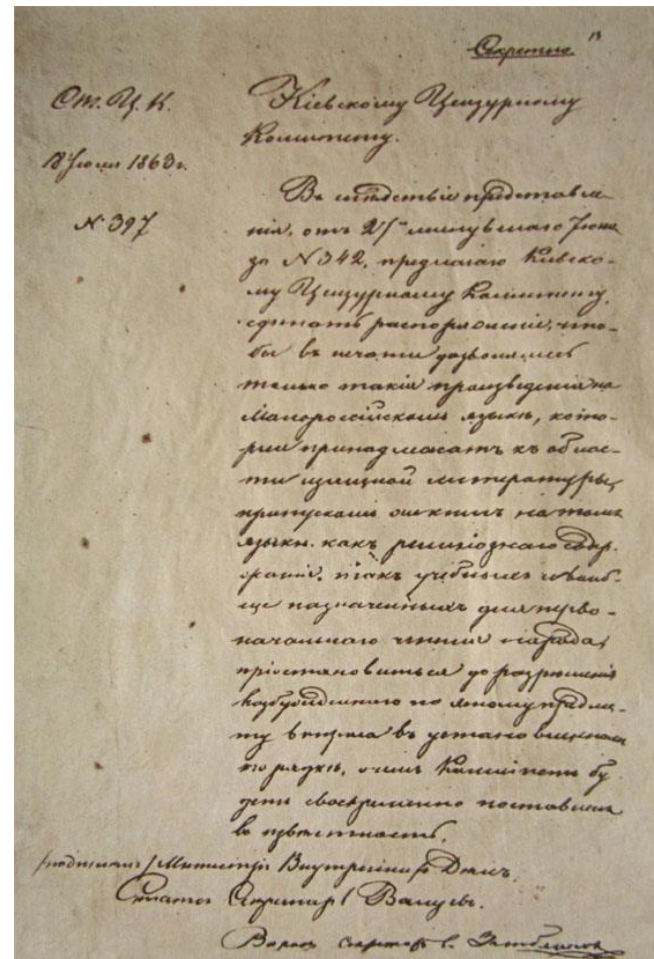 Секретно
Ст. Ц. К.
Кіевскому Цензурному
Комитету.
18 Іюля 1863 г.
Въ слѣдствіе представле-
№ 397
нія, отъ 27 минувшаго Іюня
за № 342, предлагаю Кіевско-
му Цензурному Комитету,
сдѣлать распоряженіе, что-
бы къ печати дозволялись
только такія произведенія на
Малороссійскомъ языкѣ, кото-
рыя принадлежатъ къ облас-
ти изящной литературы;
книгъ на томъ
языкѣ, какъ религіознаго содер-
жанія, такъ учебныхъ и вооб-
ще назначенныхъ для перво-
начальнаго чтенія народа,
пріостановиться до разрѣшенія
возбужденнаго по этому предме-
ту вопроса въ установленномъ
порядкѣ, о чемъ Комитетъ бу-
детъ своевременно поставленъ
въ извѣстность.
/подписалъ/ Министръ Внутреннихъ Дѣлъ,
Статсъ Секретарь Валуевъ.